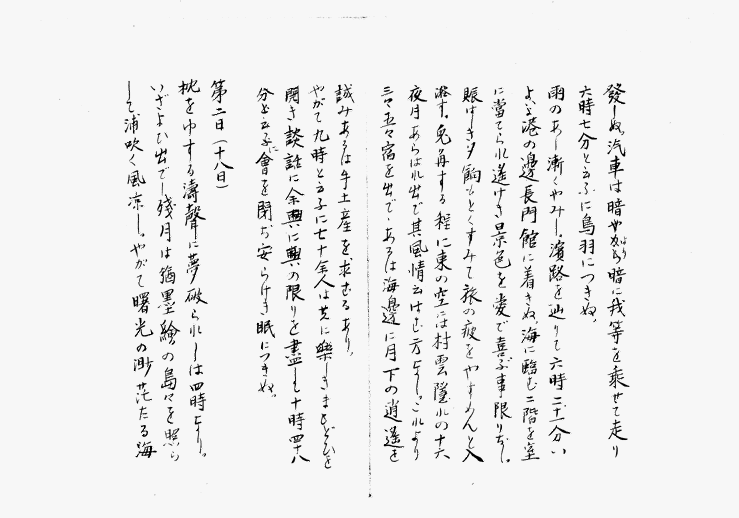 發しぬ。汽車は暗やみより暗に我等を乘せて走り
六時七分と云ふに鳥羽につきぬ。
雨のあし漸くやみし。濱路を辿りて六時二十一分い
よ〻港の邊長門館に着きぬ。海に臨む二階を室
に當てられ遙けき景色を愛で喜ぶ事限りなし。
賑はしき夕餉もとくすみて旅の疲をやすめんと入
浴す。兎角する程に東の空には村雲隱れの十六
夜月あらはれ出で其風情云はむ方なし。これより
三々五々宿を出で、あるは海邊に月下の逍遙を
試みあるは手土産を求むるあり。
やがて九時と云ふに七十余人は共に樂しきまどひを
開き談話に余興に興の限りを盡しも十時四十八
分と云ふに會を閉ぢ安らけき眠につきぬ。
第二日(十八日)
枕をゆする濤聲に夢破られしは四時なり。
いざよひ出でし殘月は猶墨繪の島々を照ら
して浦吹く風凉し。やがて曙光の渺茫たる海